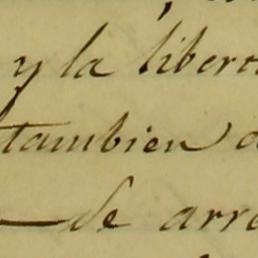 y la libert
tambien
de arr